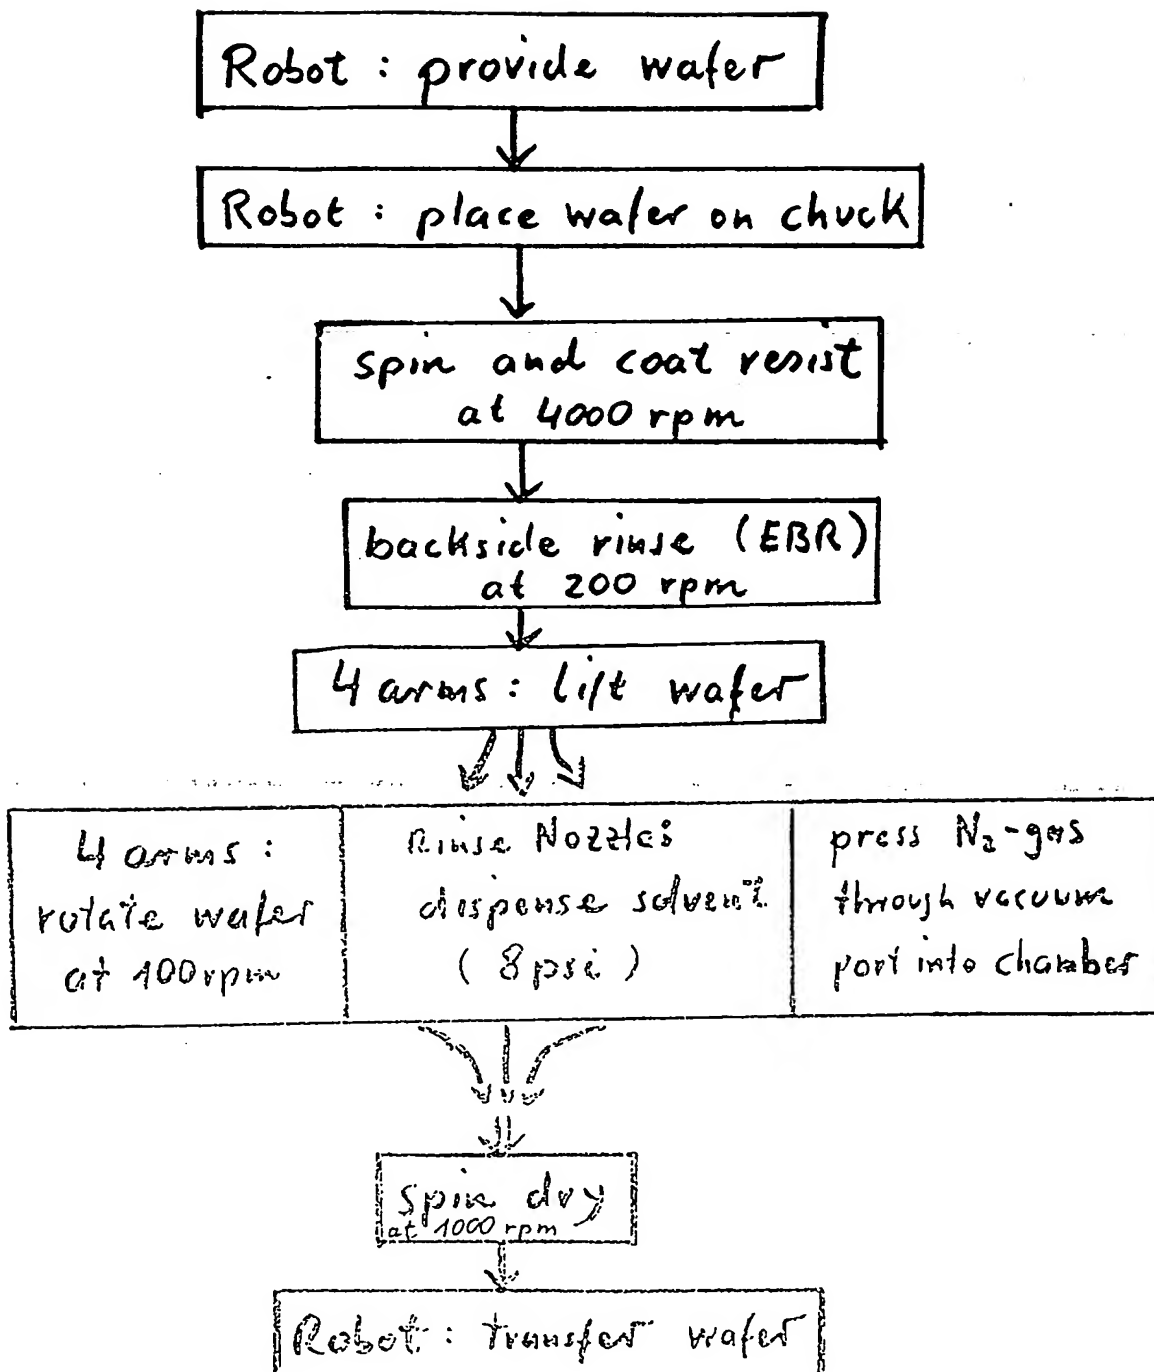 Robot : provide wafer
Robot : place wafer on chuck
spin and coat resist
at 4000 rpm
backside rinse (EBR)
at 200 rpm
4 arms : lift wafer
4 arms :
rotate wafer
at 100rpm
Rinse Nozzles
dispense solvent
( 8 psi )
press N₂-gas
through vacuum
port into chamber
spin dry
at 1000 rpm
Robot : transfer wafer